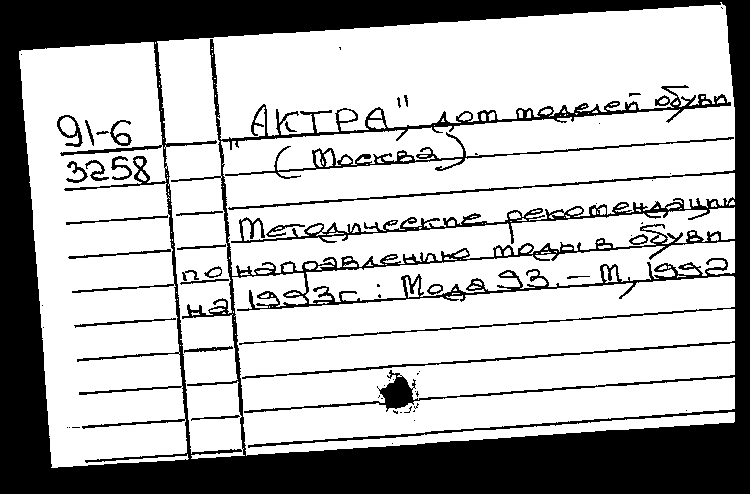 91-6
3258
"АКТРА", дом моделей обуви
(Москва).
Методические рекомендации
по направлению моды в обуви
на 1993г.: Мода 93. – М., 1992